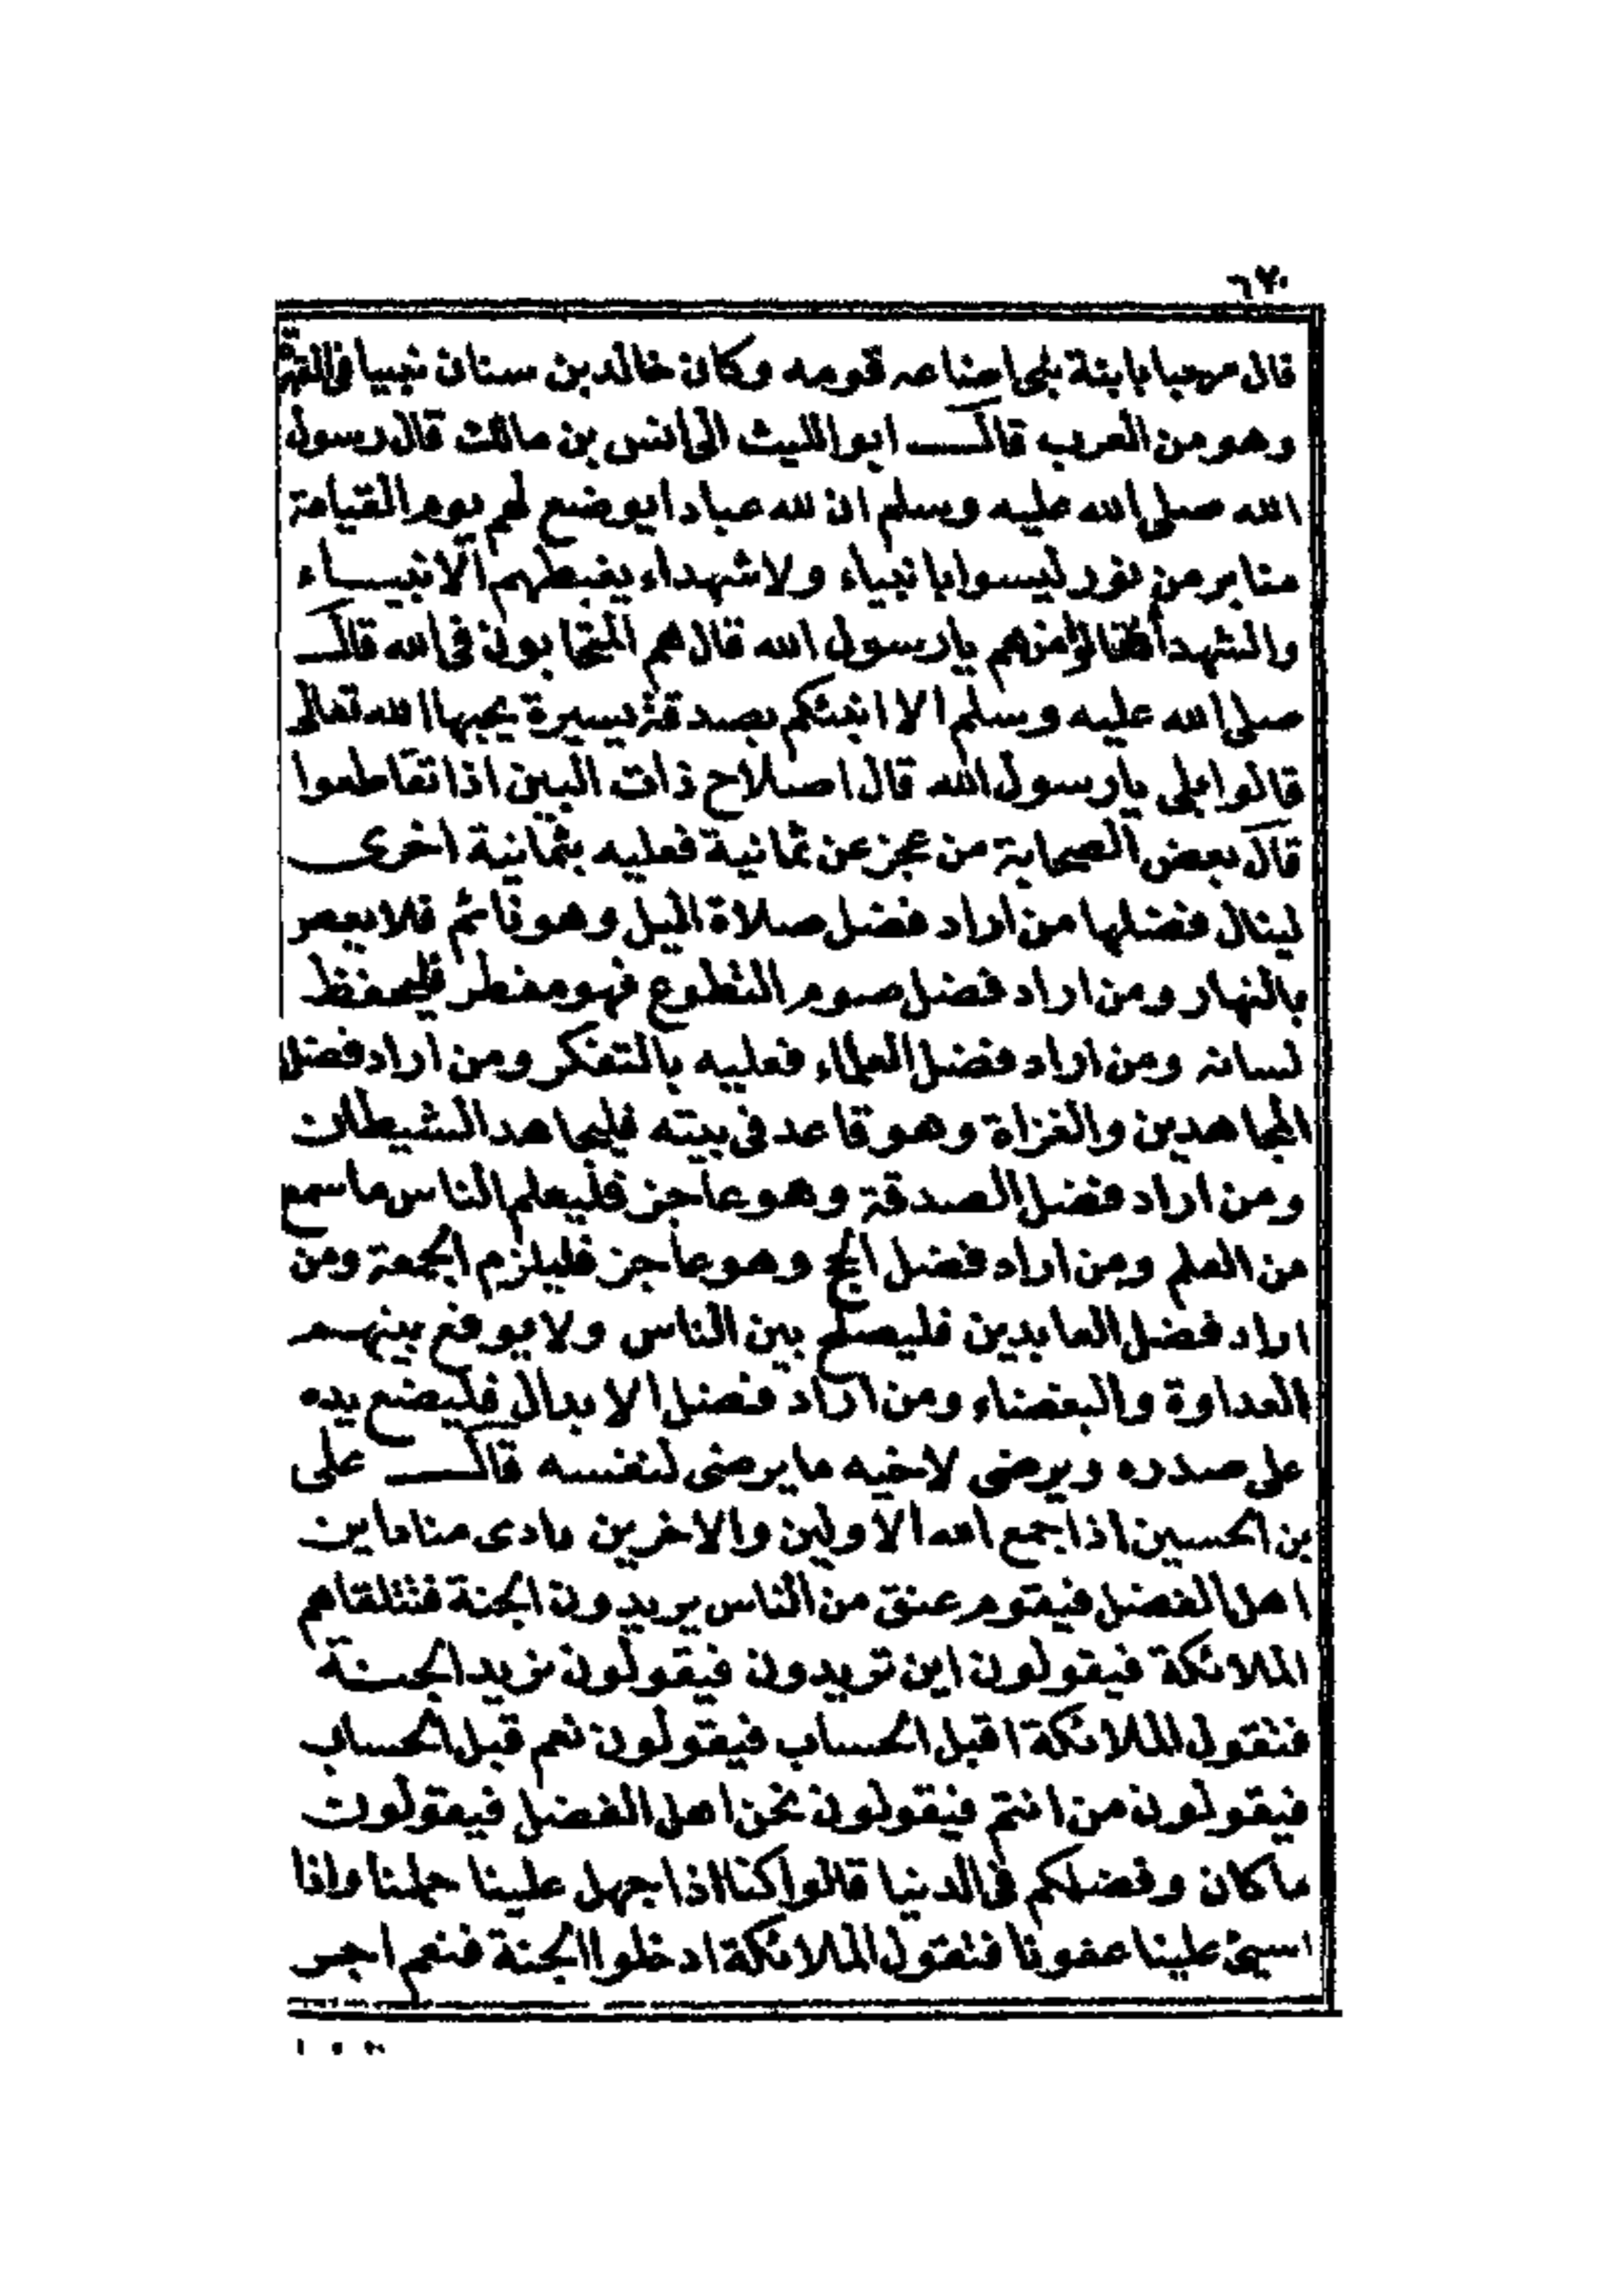 قال مرحبا بابنة نبى اضاعه قومه وكان خالد بن سنان نبيا فى الفترة
وهو من العرب قال ابو الليث الى انس بن مالك قال رسول
الله صلى الله عليه وسلم ان لله عبادا يوضع لهم يوم القيامة
منابر من نور ليسوا بانبياء ولا شهداء يغبطهم الانبياء
والشهداء فقالوا من هم يا رسول الله قال هم المتحابون فى الله قال
صلى الله عليه وسلم الا انبئكم بصدقة يسيرة يحبها الله تعالى
قالوا بلى يا رسول الله قال اصلاح ذات البين اذا تقاطعوا
قال بعض الصحابة من عجز عن ثمانية فعليه بثمانية اخرى
لينال فضلها من اراد فضل صلاة اليل وهو نائم فلا يعص
بالنهار ومن اراد فضل صوم التطوع فهو مفطر فليحفظ
لسانه ومن اراد فضل العلماء فعليه بالتفكر ومن اراد فضل
المجاهدين والغزاة وهو قاعد فى بيته فليجاهد الشيطان
ومن اراد فضل الصدقة وهو عاجز فليعلم الناس ما سمع
من العلم ومن اراد فضل الحج وهو عاجز فليلزم الجمعة ومن
اراد فضل العابدين فليصلح بين الناس ولا يوقع بينهم
العداوة والبغضاء ومن اراد فضل الابدال فليضع يده
على صدره ويرضى لاخيه ما يرضى لنفسه قال على
بن الحسين اذا جمع الله الاولين والاخرين نادى مناد اين
اهل الفضل فيقوم عنق من الناس يريدون الجنة فتتلقاهم
الملائكة فيقولون اين تريدون فيقولون نريد الجنة
فتقول الملائكة اقبل الحساب فيقولون نعم قبل الحساب
فيقولون من انتم فيقولون نحن اهل الفضل فيقولون
ما كان وفضلكم فى الدنيا قالوا كنا اذا جهل علينا حلمنا واذا
اسىء علينا عفونا فتقول الملائكة ادخلوا الجنة فنعم اجر